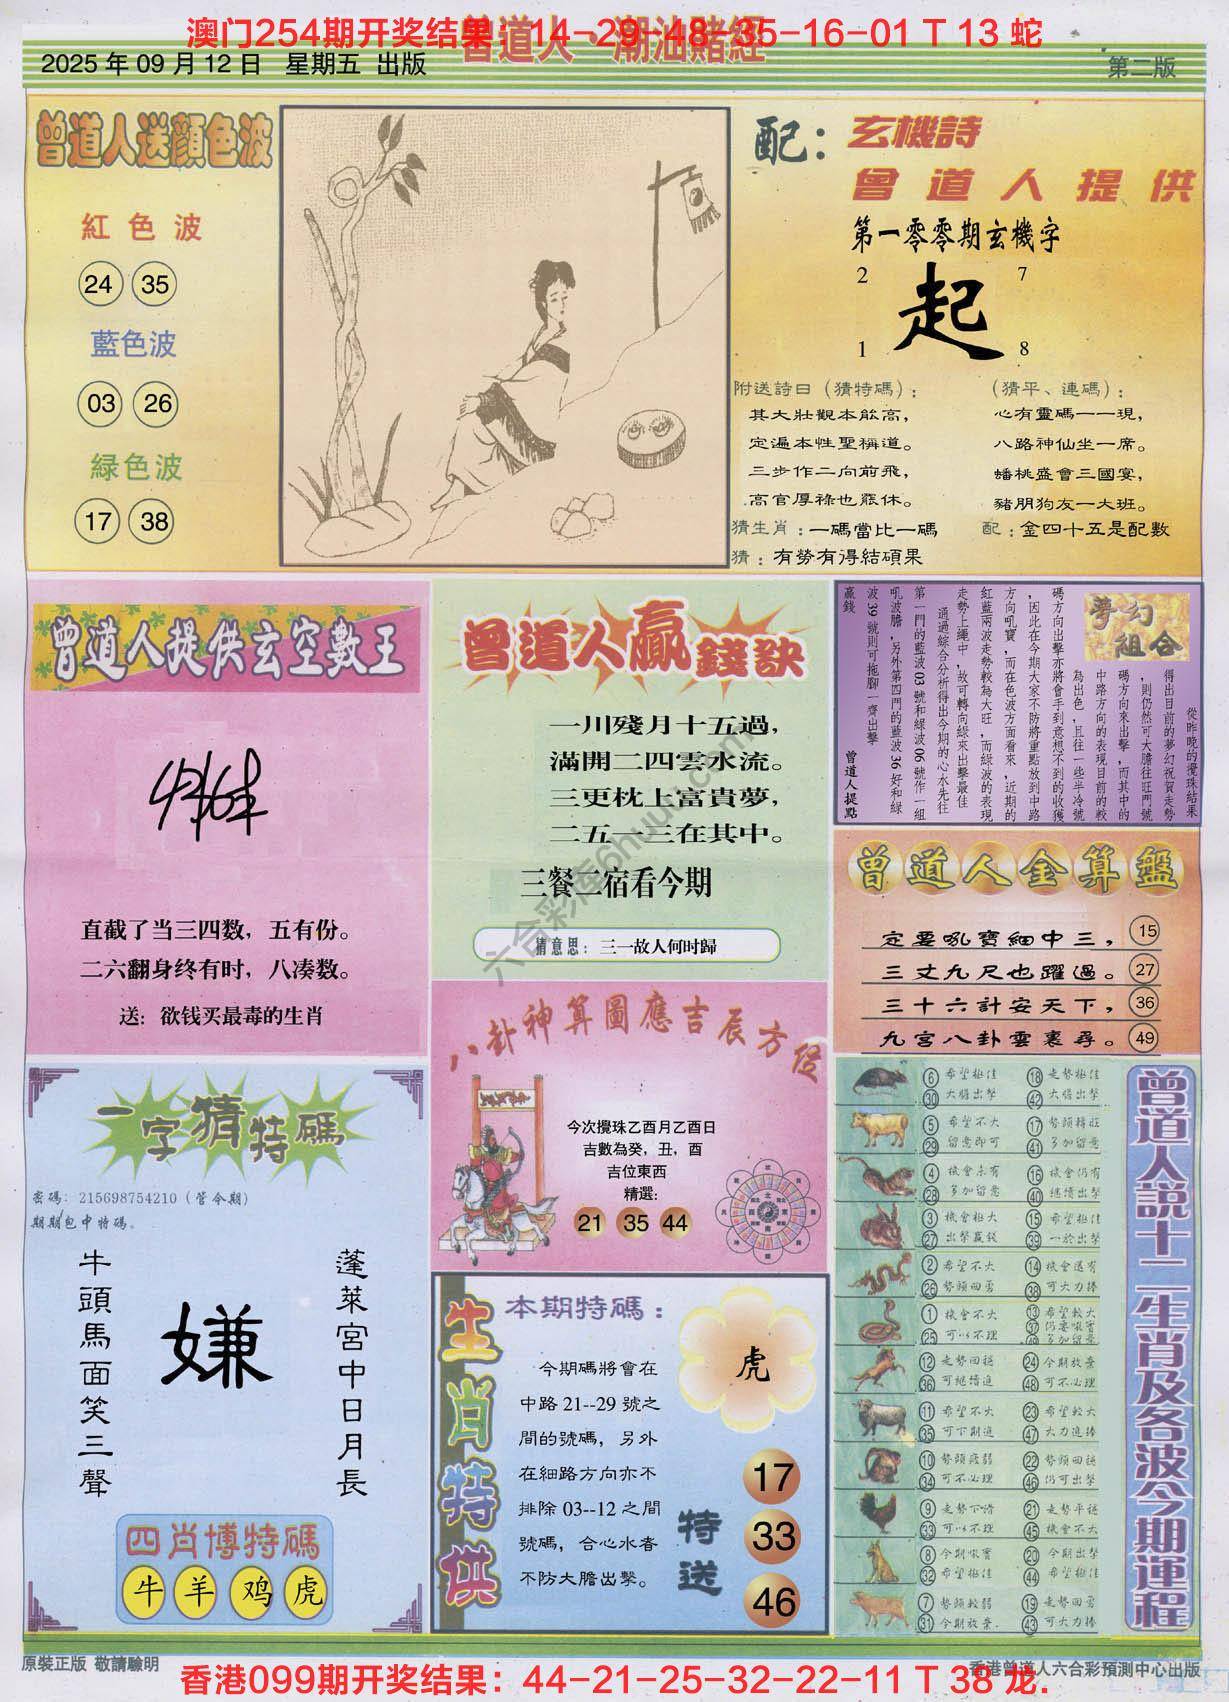 澳门254期开奖结果：14-29-48-35-16-01 T 13 蛇
曾道人·潮汕賭經
2025 年 09 月 12 日 星期五 出版
第二版
曾道人送顔色波
紅色波
24 35
藍色波
03 26
緑色波
17 38
配：玄機詩
曾道人提供
第一零零期玄機字
2 7
起
1 8
附送詩曰（猜特碼）：
其大壯觀本能高，
定遍本性聖稱道。
三步作二向前飛，
高官厚祿也罷休。
猜生肖：一碼當比一碼
猜：有勞有得結碩果
（猜平、連碼）：
心有靈碼一一現，
八路神仙坐一席。
蟠桃盛會三國宴，
豬朋狗友一大班。
配：金四十五是配數
曾道人提供玄空數王
直截了当三四数，五有份。
二六翻身终有时，八凑数。
送：欲钱买最毒的生肖
曾道人贏錢訣
一川殘月十五過，
滿開二四雲水流。
三更枕上富貴夢，
二五一三在其中。
三餐二宿看今期
猜意思：三一故人何时歸
夢幻
組合
從昨晚的攪珠結果
得出目前的夢幻祝賀走勢
，則仍然可大膽往旺門號
碼方向來出擊，而其中的
中路方向的表現目前的較
為出色，且往一些半冷號
碼方向出擊亦將會手到意想不到的收獲
，因此在今期大家不防將重點放到中路
方向吼寶，而在色波方面看來，近期的
紅藍兩波走勢較為大旺，而綠波的表現
走勢上繩中，故可轉向綠來出擊最佳
通過綜合分析得出今期的心水先往
第一門的藍波 03 號和綠波 06 號作一組
吼波膽，另外第四門的藍波 36 好和綠
波 39 號則可拖腳一齊出擊
贏錢
曾道人提點
曾道人金算盤
定要吼寶細中三， 15
三丈九尺也躍過。 27
三十六計安天下， 36
九宮八卦雲裏尋。 49
八卦神算圖應吉辰方位
今次攪珠乙酉月乙酉日
吉數為癸，丑，酉
吉位東西
精選：
21 35 44
一字猜特碼
密碼：215698754210（管今期）
期期包中特碼。
蓬萊宮中日月長
嫌
牛頭馬面笑三聲
四肖博特碼
牛 羊 鸡 虎
生肖特供
本期特碼：
虎
今期碼將會在
中路 21--29 號之
間的號碼，另外
在細路方向亦不
排除 03--12 之間
號碼，合心水者
不防大膽出擊。
特送
17
33
46
曾道人説十二生肖及各波今期運程
6 希望極佳 18 走勢極佳
30 大膽出擊 42 大膽出擊
5 希望不大 17 勢頭轉旺
29 留意即可 41 多加留意
4 機會未有 16 機會仍有
28 多加留意 40 繼續出擊
3 機會極大 15 希望極佳
27 出擊贏錢 39 一於出擊
2 希望不大 14 機會還有
26 勢頭回勇 38 可大力捧
1 機會不大 13 希望較大
25 可以不理 49 多加留意
12 走勢回穩 24 今期放棄
36 可繼續追 48 可不必理
11 希望不大 23 希望較大
35 可下期追 47 大力追捧
10 勢頭疲弱 22 勢頭回穩
34 可不必理 46 仍可出擊
9 走勢下滑 21 走勢平穩
33 可以不理 45 機會不大
8 今期吼寶 20 今期出擊
32 希望極佳 44 希望極佳
7 勢頭較弱 19 走勢回勇
31 今期放棄. 43 可大力捧
六合彩库6huuu.com
原裝正版 敬請驗明
香港曾道人六合彩預測中心出版
香港099期开奖结果：44-21-25-32-22-11 T 38 龙.